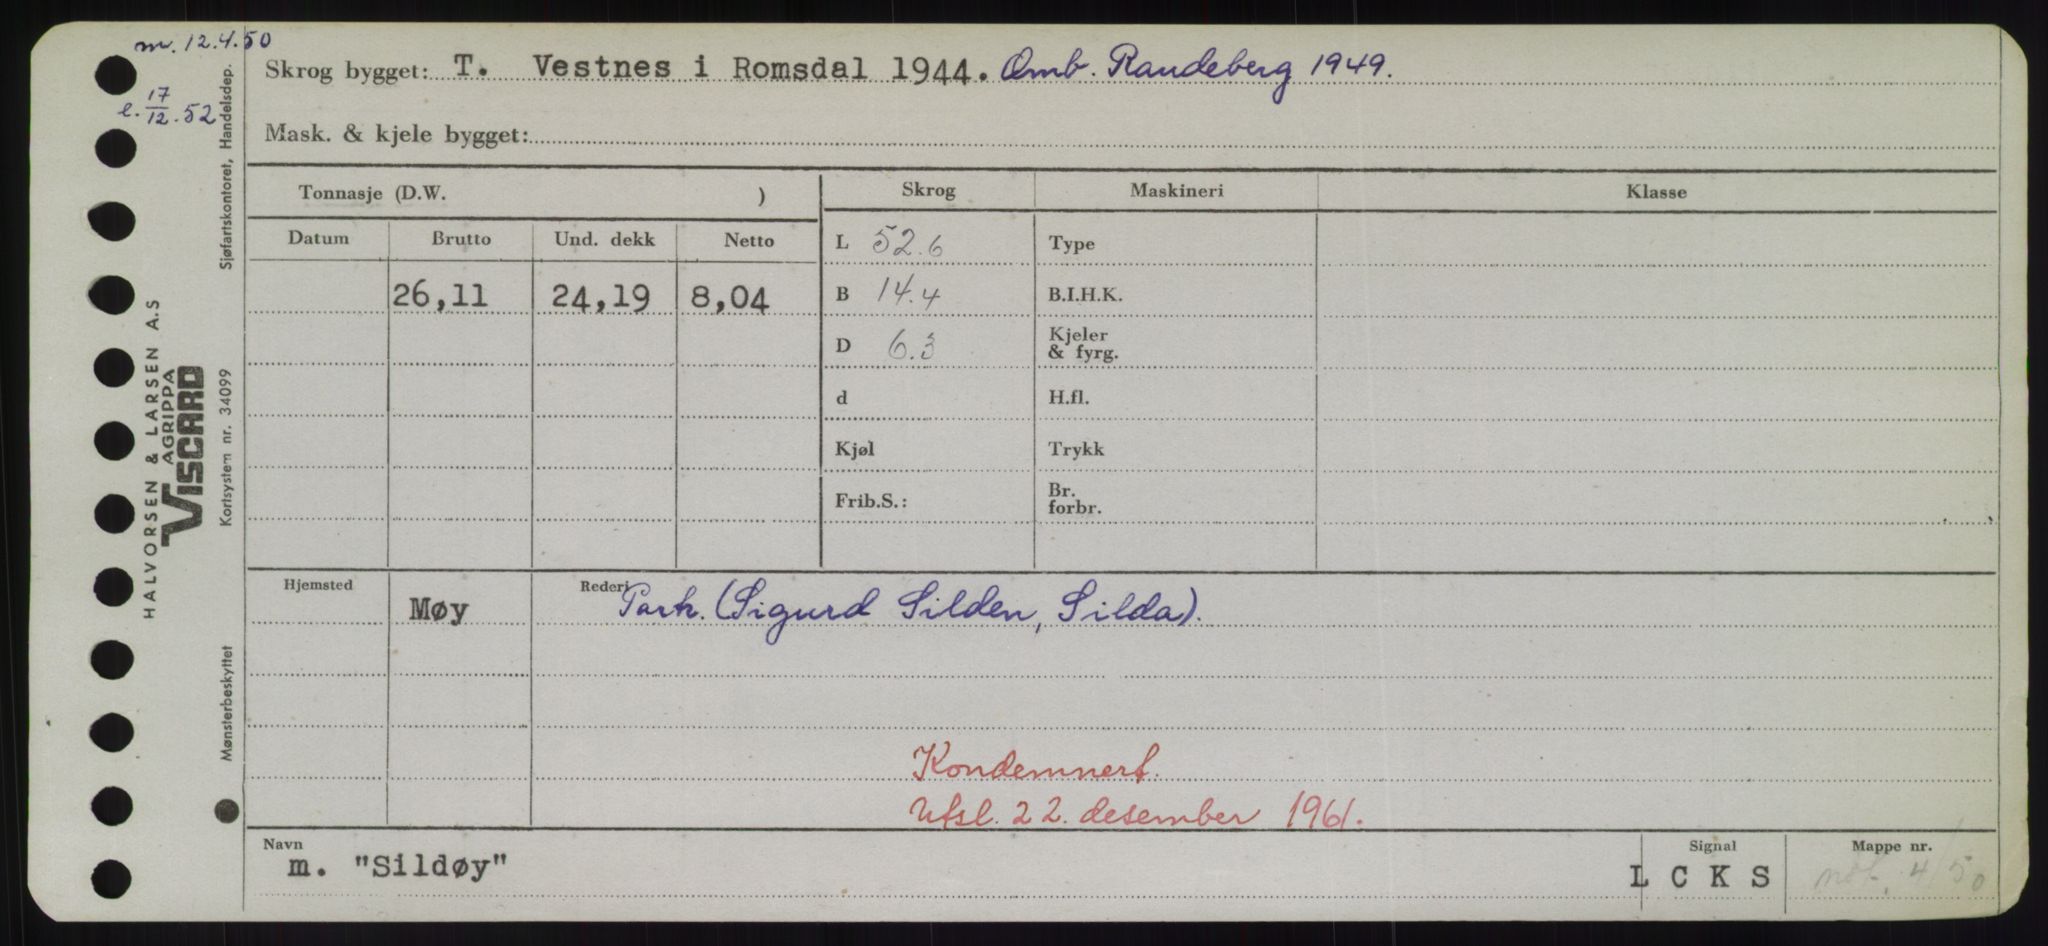 m. 12.4.50
e. 17/12.52
Skrog bygget: T. Vestnes i Romsdal 1944. Omb. Randeberg 1949.
Mask. & kjele bygget:
Tonnasje (D.W. )
Skrog Maskineri Klasse
Datum Brutto Und. dekk Netto
L 52.6 Type
26,11 24,19 8,04
B 14.4 B.I.H.K.
D 6.3 Kjeler & fyrg.
d H.fl.
Kjøl Trykk
Frib.S.: Br. forbr.
Hjemsted Rederi
Møy Partr. (Sigurd Silden, Silda).
Kondemnert.
Utsl. 22. desember 1961.
Navn Signal Mappe nr.
m. "Sildøy" L C K S not. 4/50
Sjøfartskontoret, Handelsdep.
HALVORSEN & LARSEN A.S
AGRIPPA
VISCARD
Kortsystem nr. 34099
Mønsterbeskyttet